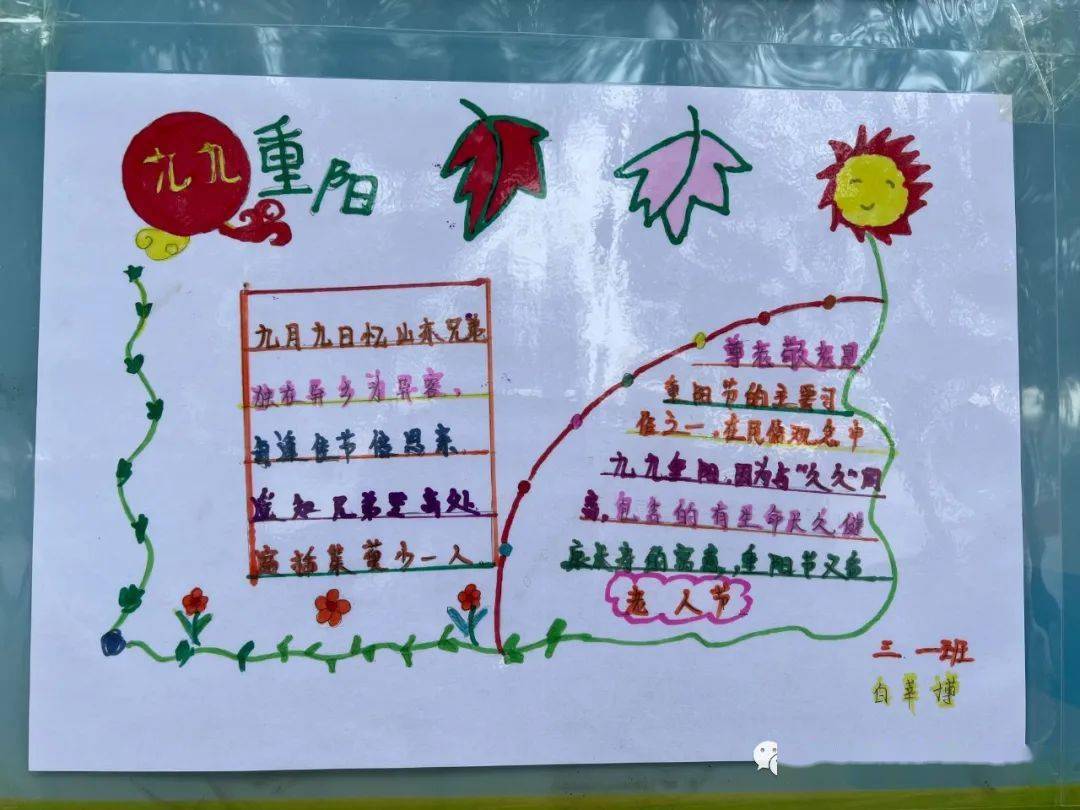 九九
重阳
九月九日忆山东兄弟
独在异乡为异客,
每逢佳节倍思亲.
遥知兄弟登高处
遍插茱萸少一人.
尊老敬老是
重阳节的主要习
俗之一,在民俗观念中
九九重阳,因为与“久久”同
音,包含的有生命长久健
康长寿的寓意,重阳节又名
老人节
三.一班
白苹博